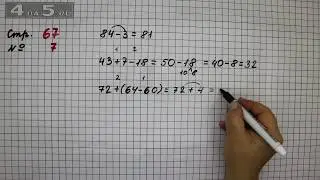 4 на 5.ru
Стр. 67
№ 7
84-3=81
1 2
43+7-18=50-18=40-8=32
10 8
2 1
72+(64-60)=72+4=